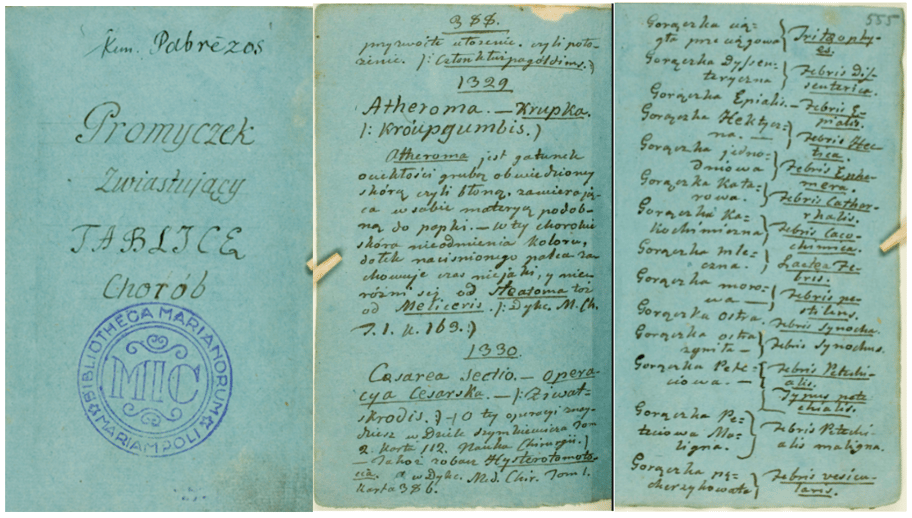 Kun. Pabrėžos
Promyczek
Zwiastujący
TABLICĘ
Chorób
BIBLIOTHECA MARIANORUM
MIC
MARIAMPOLI
388.
przyzwoite ułożenie, czyli poło-
żenie.
1329
Atheroma. — Krupka.
|: króupgumbis.)
Atheroma jest gatunek
ociekłości grubą obwiedziony
skórą czyli błoną, zawierają-
ca w sobie materyą podob-
ną do papki. — w tey chorobie
skóra nieodmienia koloru,
dołk naciśnionego palca za-
chowuje czas niejaki, y nie
różni się od Steatoma toż
od Meliceris. |: Dykc. M. Ch.
T. 1. k. 169. :)
1330.
Cesarea Sectio. — Opera-
cya Cesarska. —
O tey operacyi znay-
dziesz w Dziele Szymkiewicza Tom
2 karta 112. Nauka Chirurgii.
Hysterotomoto-
cia. a w Dykc. Med. Chir. Tom 1.
karta 386.
555
Gorączka cią-
gła przeciągowa } Tritaeophy-
es.
Gorączka Dyssen-
teryczna } Febris dis-
senterica.
Gorączka Epialis. — Febris E-
pialis.
Gorączka Hektycz-
na. — } Febris Hec-
tica.
Gorączka jedno-
dniowa } Febris Ephe-
mera.
Gorączka Kata-
rowa. } Febris Cathar-
rhalis.
Gorączka Ka-
kochimiczna } Febris Caco-
chimica.
Gorączka mle-
czna. } Lactea Fe-
bris.
Gorączka moro-
wa — } Febris pe-
stilens.
Gorączka Ostra. Febris Synocha.
Gorączka ostra
zgniła — } Febris Synochus.
Gorączka Pete-
ciowa. — { Febris Petechi-
alis.
Typus pete-
chialis.
Gorączka Pe-
teciowa Ma-
ligna. } Febris Petechi-
alis maligna.
Gorączka pę-
cherzykowata } Febris vesicu-
laris.